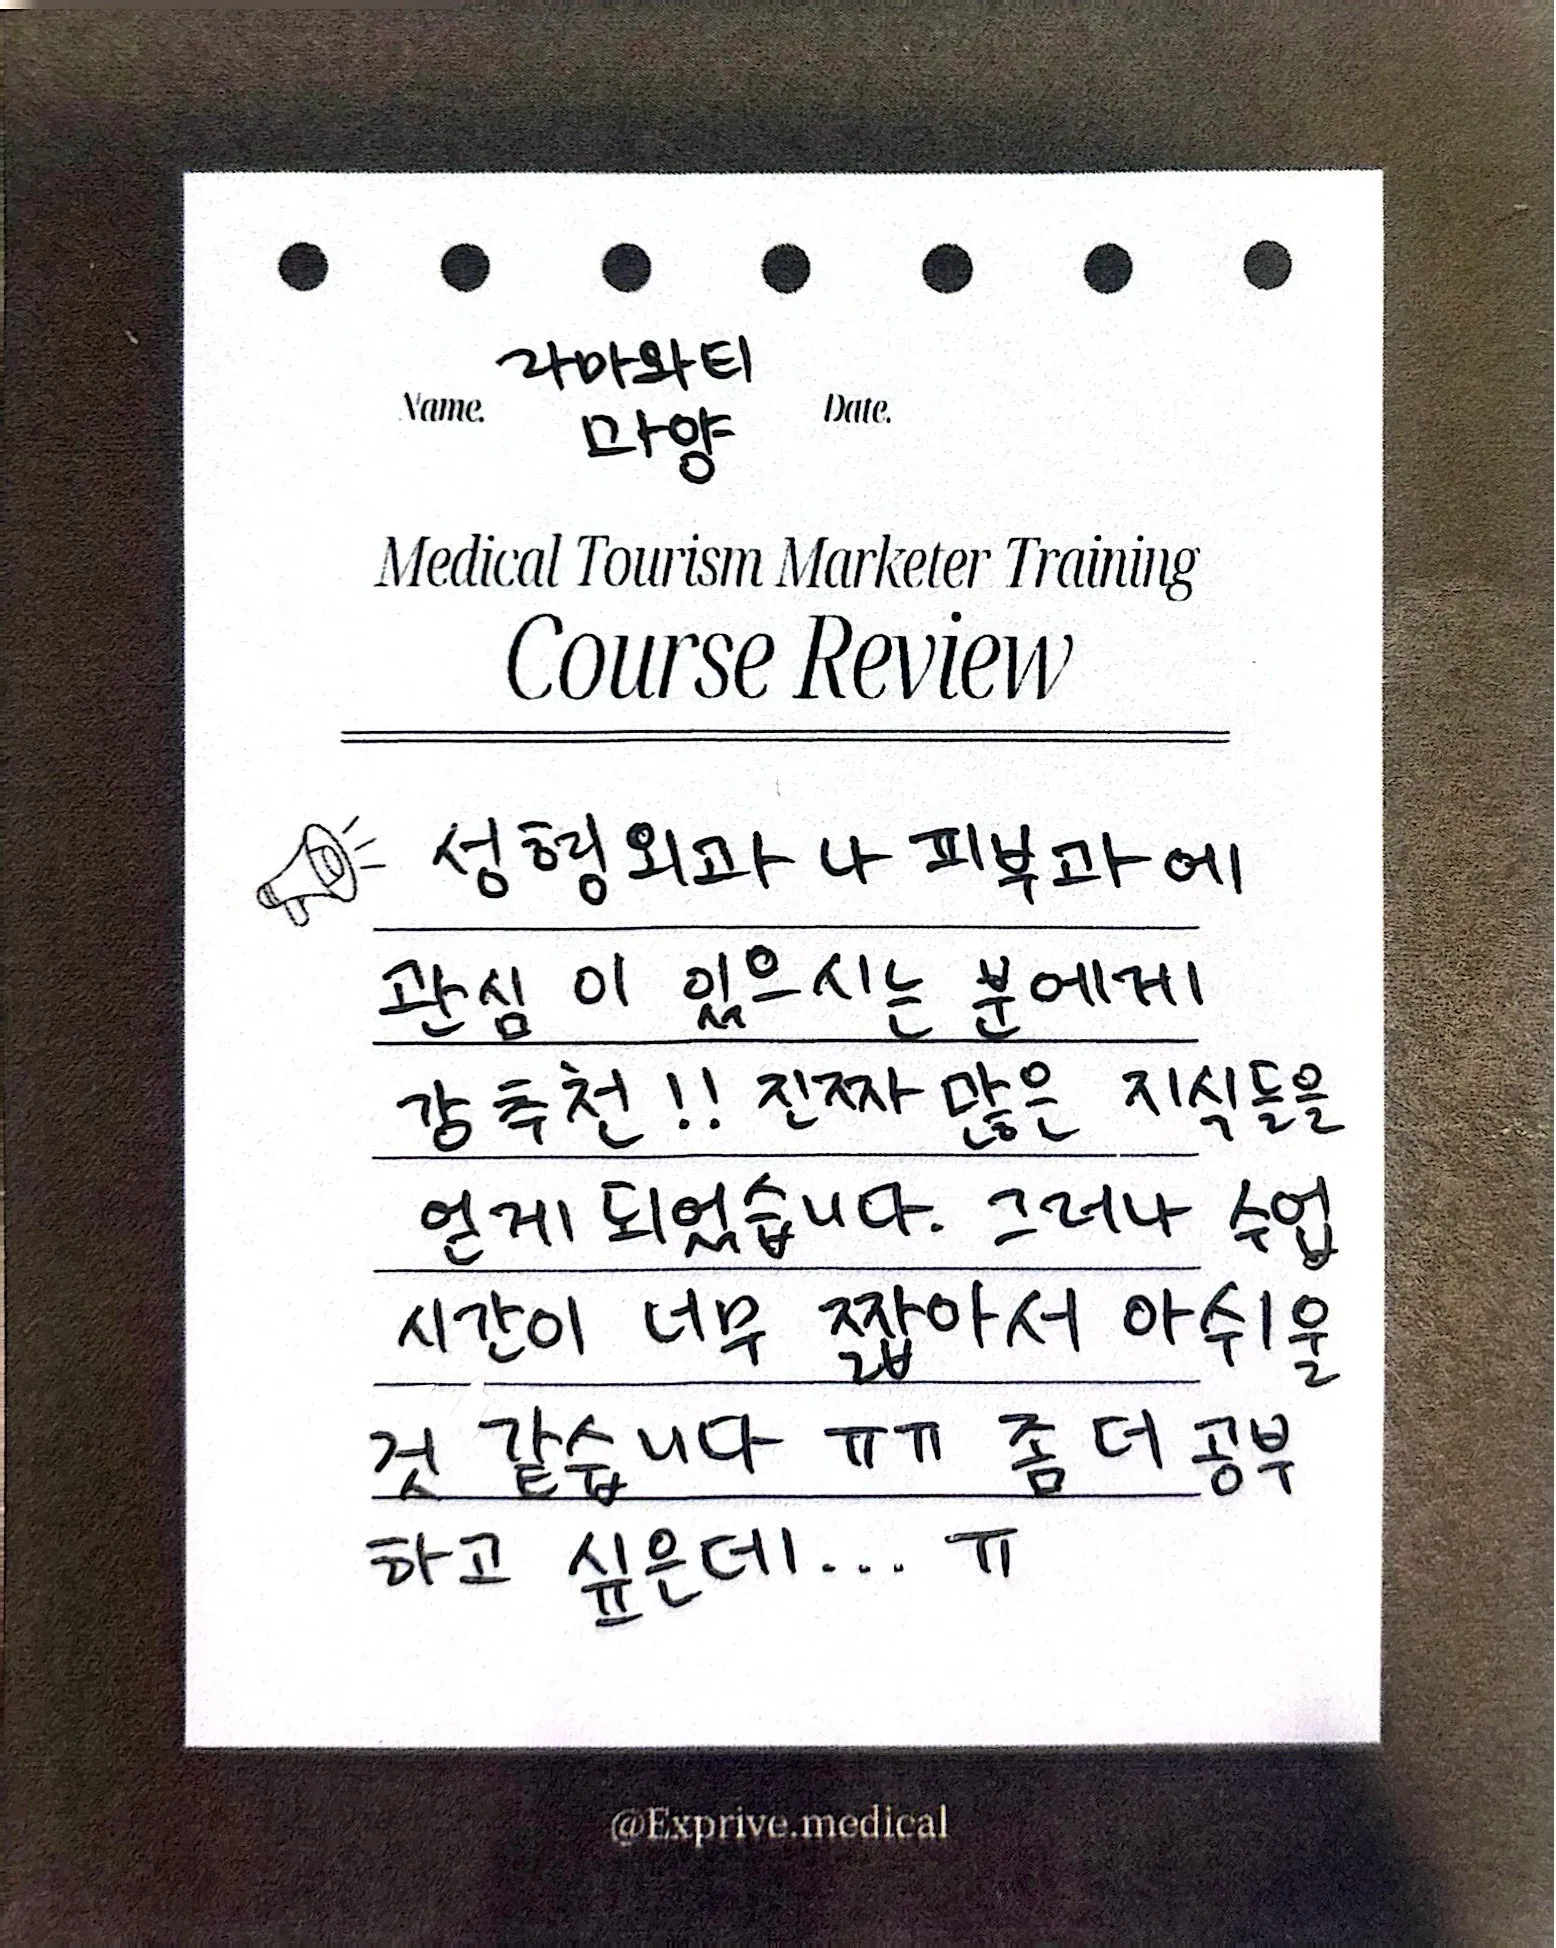 라마와티
Name. Date.
마양
Medical Tourism Marketer Training
Course Review
성형외과 나 피부과에
관심 이 있으시는 분에게
강추천!! 진짜 많은 지식들을
얻게 되었습니다. 그러나 수업
시간이 너무 짧아서 아쉬울
것 같습니다 ㅠㅠ 좀 더 공부
하고 싶은데... ㅠ
@Exprive.medical